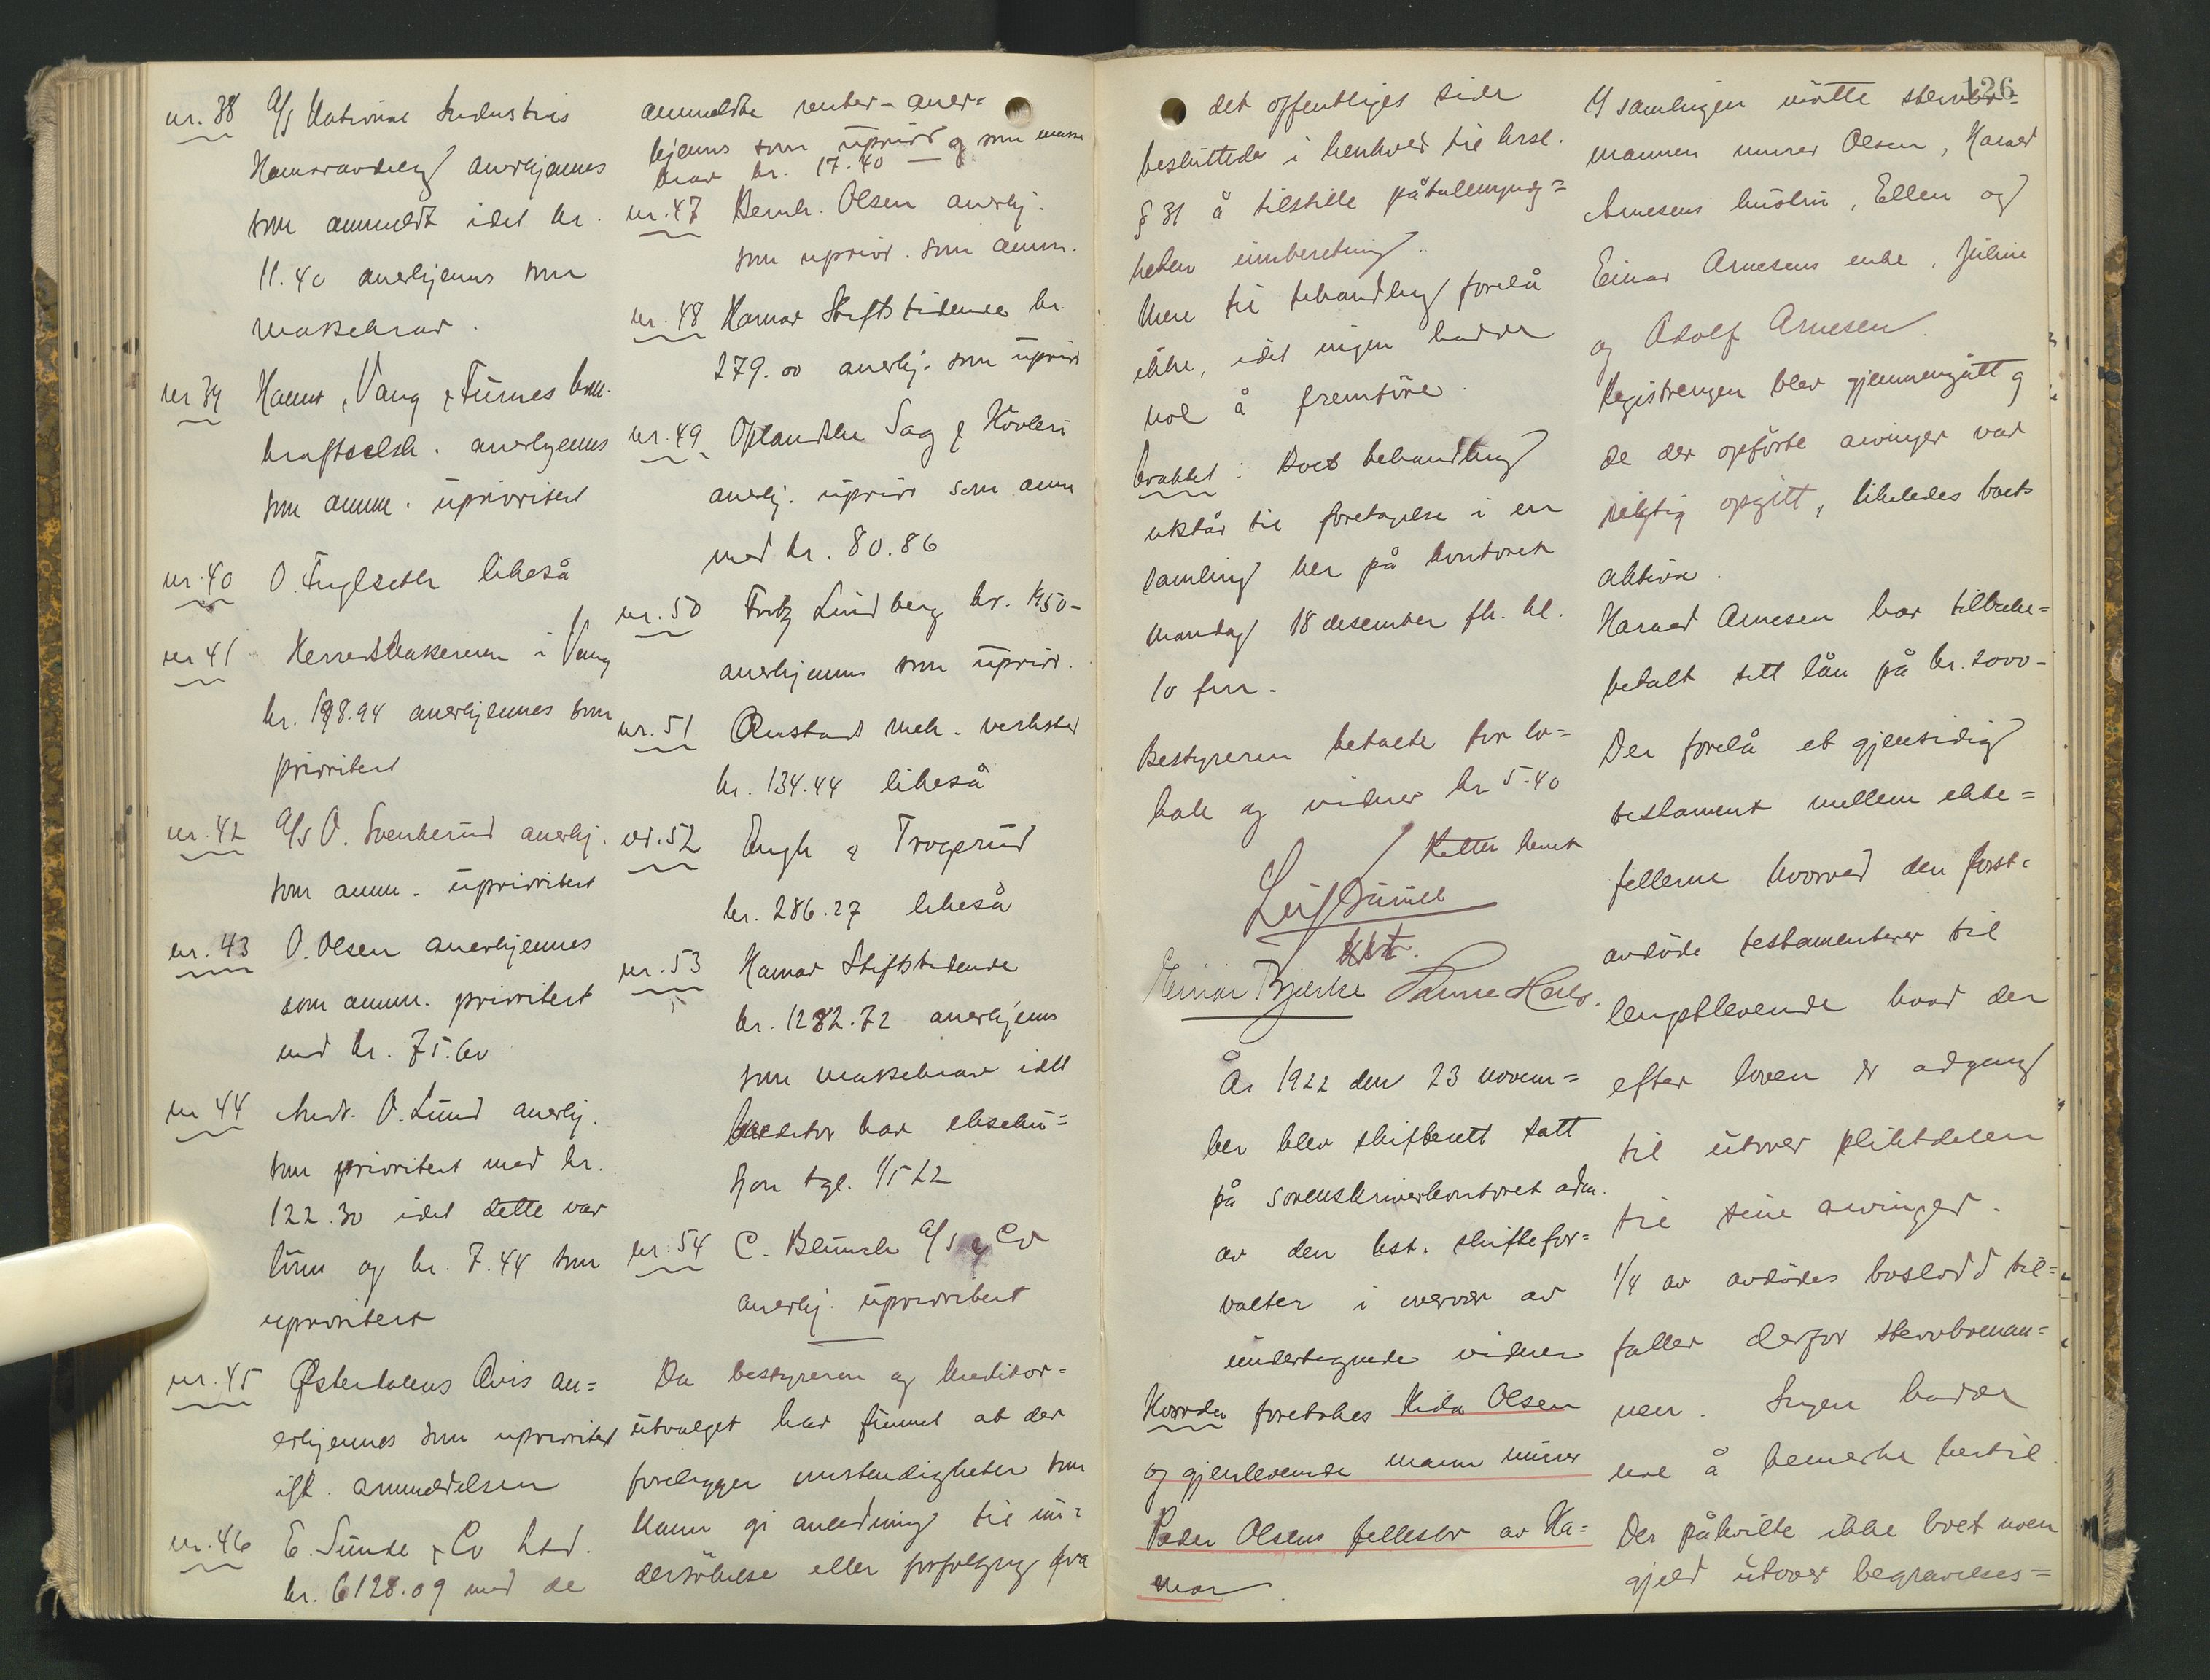 nr. 38 A/S National Industris
Hamaravdeling anerkjennes
som anmeldt idet kr.
11.40 anerkjennes som
massekrav.
nr 39 Hamar, Vang & Furnes kom.
kraftselsk. anerkjennes
som anm. uprioritert
nr. 40 O. Fuglseth likeså
nr 41 Herredskassereren i Vang
kr. 198.94 anerkjennes som
prioritert
nr. 42 A/S O. Svenkerud anerkj.
som anm. uprioritert
nr. 43 O. Olsen anerkjennes
som anm. prioritert
med kr. 75.60
nr 44 Andr. O. Lund anerkj.
som prioritert med kr.
122.30 idet dette var
lönn og kr. 7.44 som
uprioritert
nr. 45 Østerdalens Avis an=
erkjennes som uprioritert
ifl. anmeldelsen
nr. 46 E. Sunde & Co Ltd.
kr. 6128.09 med de
anmeldte renter - aner=
kjennes som uprior og som masse
krav kr. 17.40
nr. 47 Bernh. Olsen anerkj.
som uprior. som anm.
nr. 48 Hamar Stiftstidende kr.
279.00 anerkj. som uprior
nr. 49 Oplandske Sag & Hövleri
anerkj. uprior som anm
med kr. 80.86
nr. 50 Fritz Lundberg kr. 1450-
anerkjennes som uprior.
nr. 51 Ånstad mek. verksted
kr. 134.44 likeså
nr. 52 Engh & Trogerud
kr. 286.27 likeså
nr. 53 Hamar Stiftstidende
kr. 1282.72 anerkjennes
som massekrav idet
kreditor har ekseku=
sjon tgl. 1/5 22
nr. 54 C. Blunck A/S & Co
anerkj. uprioritert
Da bestyreren og kreditor=
utvalget har funnet at der
foreligger omstendigheter som
kann gi anledning til un=
dersökelse eller forfölgning fra
det offentliges side
besluttedes i henhold til krsl.
§ 31 å tilstille påtalemyndig=
heten innberetning.
Mere til behandling forelå
ikke, idet ingen hadde
noe å fremföre.
Avsluttet: Boets behandling
utstår til foretagelse i en
samling her på kontoret
mandag 18 desember fk. kl.
10 fm.
Bestyreren betalte for lo=
kale og vidner kr 5.40
Retten hevet
Leif
kst.
Einar Bjerke
År 1922 den 23 novem=
ber blev skifterett satt
på sorenskriverkontoret adm.
av den kst. skiftefor=
valter i nærvær av
undertegnede vidner
Hvorda foretokes Vida Olsen
og gjenlevende mann murer
Peder Olsens fellesbo av Ha=
mar
126
I samlingen mötte stervbo=
mannen murer Olsen, Harald
Arnesens hustru, Ellen og
Einar Arnesens enke, Juline
og Adolf Arnesen.
Registreringen blev gjennemgått og
de der opförte arvinger var
riktig opgitt, likeledes boets
aktiva.
Harald Arnesen har tilbake=
betalt sitt lån på kr. 2000-
Der forelå et gjensidig
testament mellem ekte=
fellerne hvorved den först=
avdöde testamenterer til
lengstlevende hvad der
efter loven er adgang
til utover pliktdelen
til sine arvinger.
1/4 av avdödes boslodd til=
faller derfor stervboman=
nen. Ingen hadde
noe å bemerke hertil.
Der påhvilte ikke boet noen
gjeld utover begravelses=